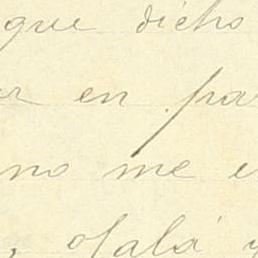 que dicho
en pa
no me e
, ojalá y